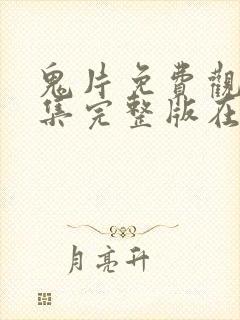 鬼片免費觀
集完整版在
月亮升